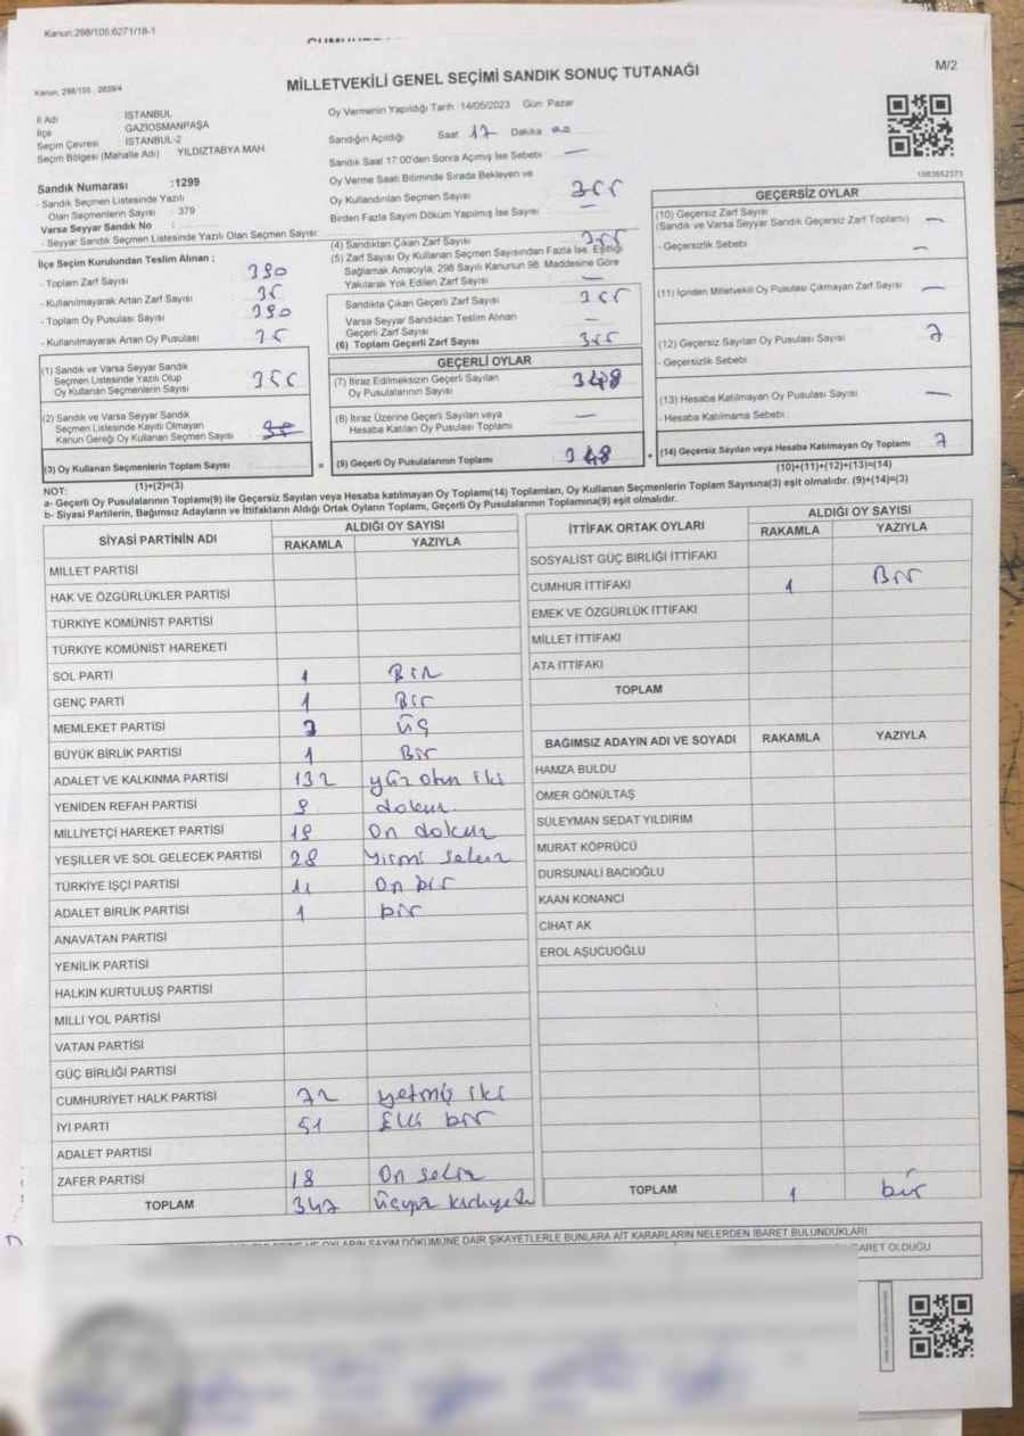 Kanun:298/105:6271/18-1
MİLLETVEKİLİ GENEL SEÇİMİ SANDIK SONUÇ TUTANAĞI
M/2
İl Adı İSTANBUL
İlçe GAZİOSMANPAŞA
Seçim Çevresi İSTANBUL-2
Seçim Bölgesi (Mahalle Adı) YILDIZTABYA MAH
Sandık Numarası :1299
- Sandık Seçmen Listesinde Yazılı
Olan Seçmenlerin Sayısı : 379
Varsa Seyyar Sandık No :
- Seyyar Sandık Seçmen Listesinde Yazılı Olan Seçmen Sayısı:
Oy Vermenin Yapıldığı Tarih :14/05/2023 Gün: Pazar
Sandığın Açıldığı Saat 17 Dakika 00
Sandık Saat 17:00'den Sonra Açımış İse Sebebi —
Oy Verme Saati Bitiminde Sırada Bekleyen ve
Oy Kullandırılan Seçmen Sayısı 355
Birden Fazla Sayım Döküm Yapılmış İse Sayısı —
İlçe Seçim Kurulundan Teslim Alınan :
- Toplam Zarf Sayısı 390
- Kullanılmayarak Artan Zarf Sayısı 35
- Toplam Oy Pusulası Sayısı 390
- Kullanılmayarak Artan Oy Pusulası 35
(1) Sandık ve Varsa Seyyar Sandık
Seçmen Listesinde Yazılı Olup
Oy Kullanan Seçmenlerin Sayısı 355
(2) Sandık ve Varsa Seyyar Sandık
Seçmen Listesinde Kayıtlı Olmayan
Kanun Gereği Oy Kullanan Seçmen Sayısı
(3) Oy Kullanan Seçmenlerin Toplam Sayısı
(1)+(2)=(3)
(4) Sandıktan Çıkan Zarf Sayısı 355
(5) Zarf Sayısı Oy Kullanan Seçmen Sayısından Fazla İse, Eşitliği
Sağlamak Amacıyla, 298 Sayılı Kanunun 98. Maddesine Göre
Yakılarak Yok Edilen Zarf Sayısı —
Sandıkta Çıkan Geçerli Zarf Sayısı 355
Varsa Seyyar Sandıktan Teslim Alınan
Geçerli Zarf Sayısı —
(6) Toplam Geçerli Zarf Sayısı 355
GEÇERLİ OYLAR
(7) İtiraz Edilmeksizin Geçerli Sayılan
Oy Pusulalarının Sayısı 348
(8) İtiraz Üzerine Geçerli Sayılan veya
Hesaba Katılan Oy Pusulası Toplamı —
= (9) Geçerli Oy Pusulalarının Toplamı 348
1083662573
GEÇERSİZ OYLAR
(10) Geçersiz Zarf Sayısı
(Sandık ve Varsa Seyyar Sandık Geçersiz Zarf Toplamı) —
- Geçersizlik Sebebi —
(11) İçinden Milletvekili Oy Pusulası Çıkmayan Zarf Sayısı —
(12) Geçersiz Sayılan Oy Pusulası Sayısı 7
- Geçersizlik Sebebi
(13) Hesaba Katılmayan Oy Pusulası Sayısı —
- Hesaba Katılmama Sebebi
+ (14) Geçersiz Sayılan veya Hesaba Katılmayan Oy Toplamı 7
(10)+(11)+(12)+(13)=(14)
NOT:
a- Geçerli Oy Pusulalarının Toplamı(9) ile Geçersiz Sayılan veya Hesaba katılmayan Oy Toplamı(14) Toplamları, Oy Kullanan Seçmenlerin Toplam Sayısına(3) eşit olmalıdır. (9)+(14)=(3)
b- Siyasi Partilerin, Bağımsız Adayların ve İttifakların Aldığı Ortak Oyların Toplamı, Geçerli Oy Pusulalarının Toplamına(9) eşit olmalıdır.
SİYASİ PARTİNİN ADI ALDIĞI OY SAYISI
RAKAMLA YAZIYLA
MİLLET PARTİSİ
HAK VE ÖZGÜRLÜKLER PARTİSİ
TÜRKİYE KOMÜNİST PARTİSİ
TÜRKİYE KOMÜNİST HAREKETİ
SOL PARTİ 1 BİR
GENÇ PARTİ 1 Bir
MEMLEKET PARTİSİ 3 üç
BÜYÜK BİRLİK PARTİSİ 1 Bir
ADALET VE KALKINMA PARTİSİ 132 yüz otuz iki
YENİDEN REFAH PARTİSİ 9 dokuz
MİLLİYETÇİ HAREKET PARTİSİ 19 On dokuz
YEŞİLLER VE SOL GELECEK PARTİSİ 28 Yirmi sekiz
TÜRKİYE İŞÇİ PARTİSİ 11 On bir
ADALET BİRLİK PARTİSİ 1 bir
ANAVATAN PARTİSİ
YENİLİK PARTİSİ
HALKIN KURTULUŞ PARTİSİ
MİLLİ YOL PARTİSİ
VATAN PARTİSİ
GÜÇ BİRLİĞİ PARTİSİ
CUMHURİYET HALK PARTİSİ 72 yetmiş iki
İYİ PARTİ 51 Elli bir
ADALET PARTİSİ
ZAFER PARTİSİ 18 On sekiz
TOPLAM 347 üçyüz kırkyedi
İTTİFAK ORTAK OYLARI ALDIĞI OY SAYISI
RAKAMLA YAZIYLA
SOSYALİST GÜÇ BİRLİĞİ İTTİFAKI
CUMHUR İTTİFAKI 1 Bir
EMEK VE ÖZGÜRLÜK İTTİFAKI
MİLLET İTTİFAKI
ATA İTTİFAKI
TOPLAM
BAĞIMSIZ ADAYIN ADI VE SOYADI RAKAMLA YAZIYLA
HAMZA BULDU
ÖMER GÖNÜLTAŞ
SÜLEYMAN SEDAT YILDIRIM
MURAT KÖPRÜCÜ
DURSUNALİ BACIOĞLU
KAAN KONANCI
CİHAT AK
EROL AŞUCUOĞLU
TOPLAM 1 bir
VE OYLARIN SAYIM DÖKÜMÜNE DAİR ŞİKAYETLERLE BUNLARA AİT KARARLARIN NELERDEN İBARET BULUNDUKLARI